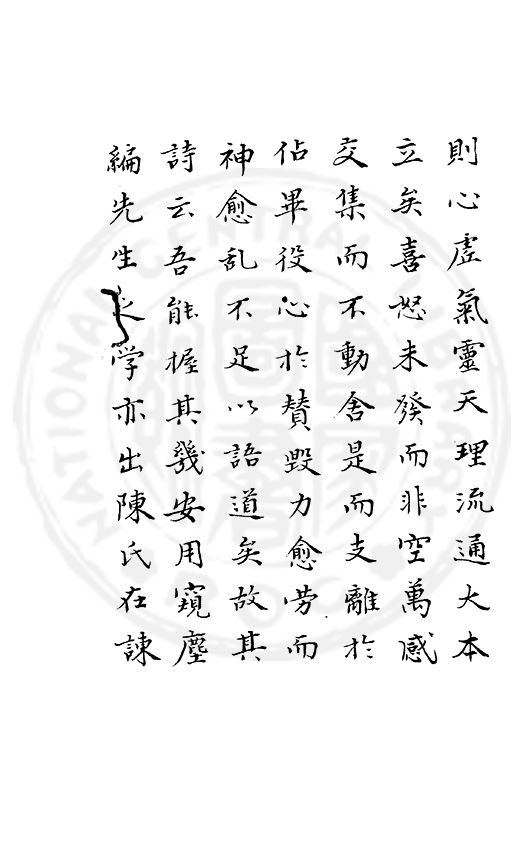 則心虛氣靈天理流通大本
立矣喜怒未發而非空萬感
交集而不動舍是而支離於
佔畢役心於贊毀力愈勞而
神愈乱不足以語道矣故其
詩云吾能握其幾安用窺塵
編先生之学亦出陳氏在諫
NATIONAL CENTRAL LIBRARY